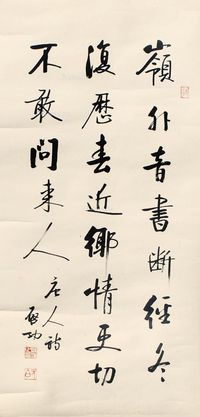 嶺外音書断經冬
復歷春近鄉情更切
不敢問来人
唐人詩
啓功